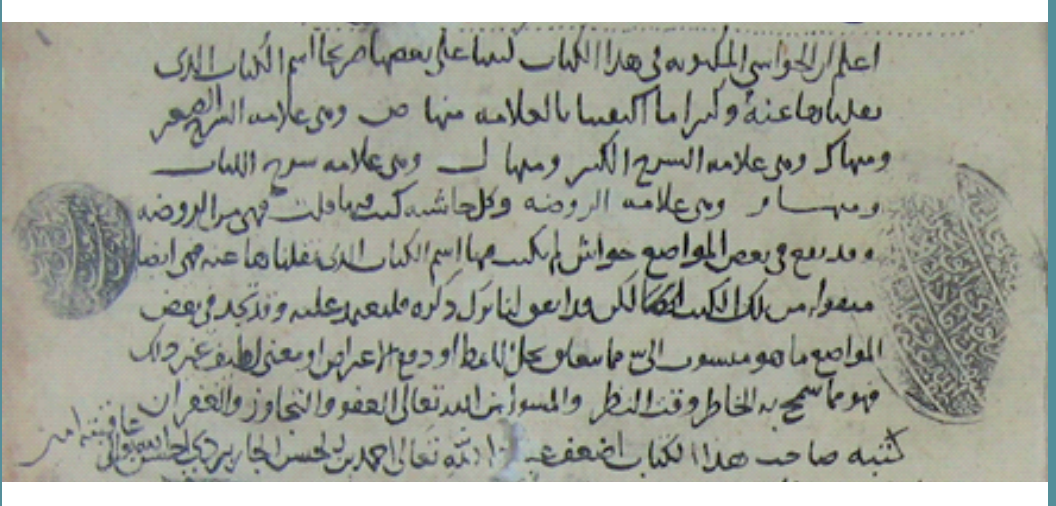 اعلم ان الحواشي المكتوبة في هذا الكتاب كتبنا على بعضها صريحا اسم الكتاب الذي
نقلناها عنه وكثيرا ما اكتفينا بالعلامة منها ص وهي علامة الشرح الصغير
ومنها ك وهي علامة الشرح الكبير ومنها ل وهي علامة شرح اللباب
ومنها وهي علامة الروضة وكل حاشية كتبت فيها قلت فهي من الروضة
وقد يقع في بعض المواضع حواش لم نكتب فيها اسم الكتاب الذي نقلناها عنه فهي ايضا
منقولة من تلك الكتب لكن قد اتفق لنا ترك ذكره فليعتمد عليه وقد تجد في بعض
المواضع ما هو منسوب الى مما يتعلق بحل اللفظ او دفع اعتراض او معنى لطيف غير ذلك
فهو مما سمح به الخاطر وقت النظر والمسؤل من الله تعالى العفو والتجاوز والغفران
كتبه صاحب هذا الكتاب اضعف عباد الله تعالى احمد بن الحسن الجاربردي احسن الله عاقبته امين